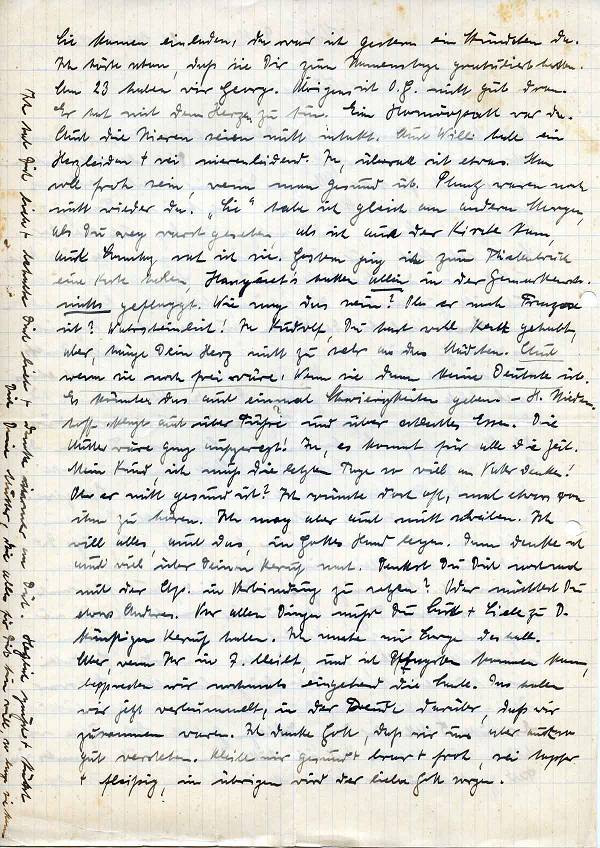 Sie kamen einladen, da war ich gestern ein Stündchen da.
Ich hörte schon, daß sie Dir zum Namenstage gratuliert hatten.
Am 23 haben wir Georg. Übrigens ist O.G. nicht gut dran.
Er hat mit dem Herzen zu tun. Ein Homöopath war da.
Auch die Nieren seien nicht intakt. Auch Willi habe ein
Herzleiden + sei nierenleidend. Ja, überall ist etwas. Man
soll froh sein, wenn man gesund ist. waren noch
nicht wieder da. „Sie“ habe ich gleich am andern Morgen,
als Du weg warst gesehen, als ich aus der Kirche kam,
auch Sonntag sah ich sie. Gestern ging ich zum
eine Karte holen, hatten allein in der
nichts geflaggt. Wie mag das sein? Ob er noch Franzose
ist? Wahrscheinlich! Ja Rudolf, Du hast wohl Recht gehabt,
aber, hänge Dein Herz nicht zu sehr an das Mädchen. Auch
wenn sie noch frei wäre! Wenn sie dann keine Deutsche ist.
Es könnte das auch einmal Schwierigkeiten geben. – H. Nieden-
hoff klagt auch über Füße und über schlechtes Essen. Die
Mutter wäre ganz aufgeregt! Ja, es kommt für alle die Zeit.
Mein Kind, ich muß die letzten Tage so viel an Vater denken!
Ob er nicht gesund ist? Ich wünschte doch oft, mal etwas von
ihm zu hören. Ich mag aber auch nicht schreiben. Ich
will alles, auch das, in Gottes Hand legen. Dann denke ich
auch viel über Deinen Beruf nach. Denkst Du Dich nochmal
mit der in Verbindung zu setzen? Oder möchtest Du
etwas Anderes. Vor allen Dingen mußt Du Lust + Liebe zu D.
künftigen Beruf haben. Ich mache mir Sorge deshalb.
Aber, wenn Ihr in F. bleibt, und ich Pfingsten kommen kann,
besprechen wir nochmals eingehend die Sache. Das haben
wir jetzt verbummelt, in der Freude darüber, daß wir
zusammen waren. Ich danke Gott, daß wir uns aber
gut verstehen. Bleibe mir gesund + brav + froh, sei tapfer
+ fleißig, im übrigen wird der liebe Gott sorgen.
Ich hab Dich lieb + behalte Dich lieb + denke immer an Dich. Herzlich grüßt + küßt
Dich Deine Mutter, die alles für Dich tun will, so lange sie kann